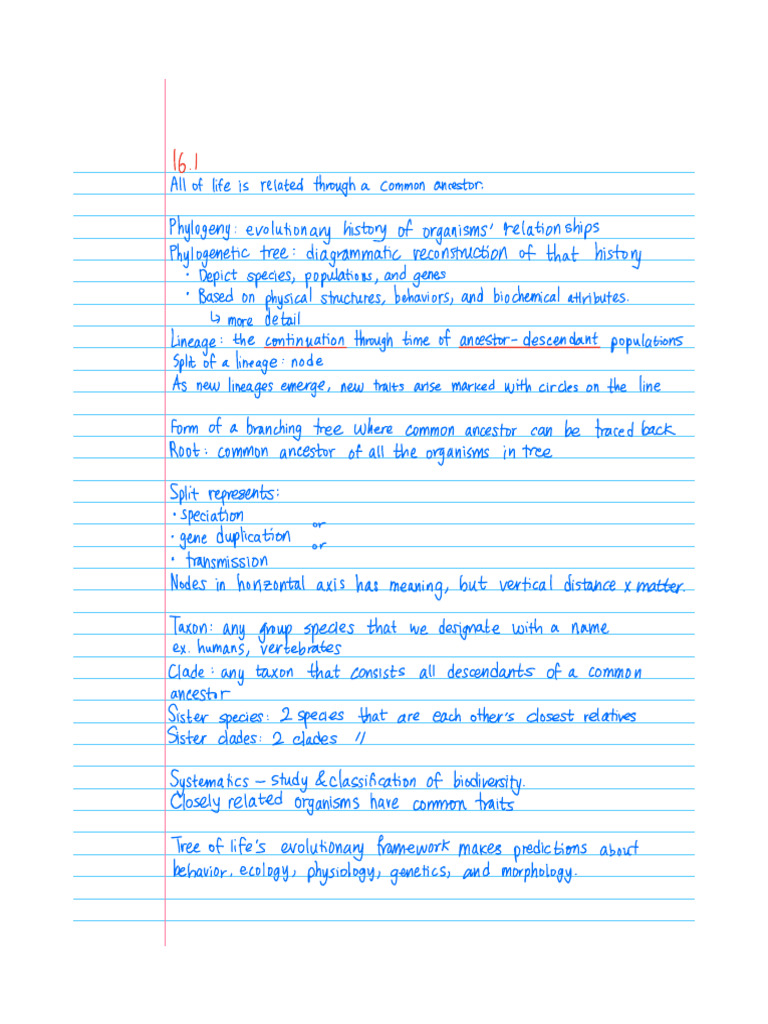 16.1
All of life is related through a common ancestor.
Phylogeny: evolutionary history of organisms' relationships
Phylogenetic tree: diagrammatic reconstruction of that history
• Depict species, populations, and genes
• Based on physical structures, behaviors, and biochemical attributes.
↳ more detail
Lineage: the continuation through time of ancestor-descendant populations
Split of a lineage: node
As new lineages emerge, new traits arise marked with circles on the line
Form of a branching tree where common ancestor can be traced back
Root: common ancestor of all the organisms in tree
Split represents:
• speciation
or
• gene duplication
or
• transmission
Nodes in horizontal axis has meaning, but vertical distance x matter.
Taxon: any group species that we designate with a name
ex. humans, vertebrates
Clade: any taxon that consists all descendants of a common
ancestor
Sister species: 2 species that are each other's closest relatives
Sister clades: 2 clades "
Systematics – study & classification of biodiversity.
Closely related organisms have common traits
Tree of life's evolutionary framework makes predictions about
behavior, ecology, physiology, genetics, and morphology.